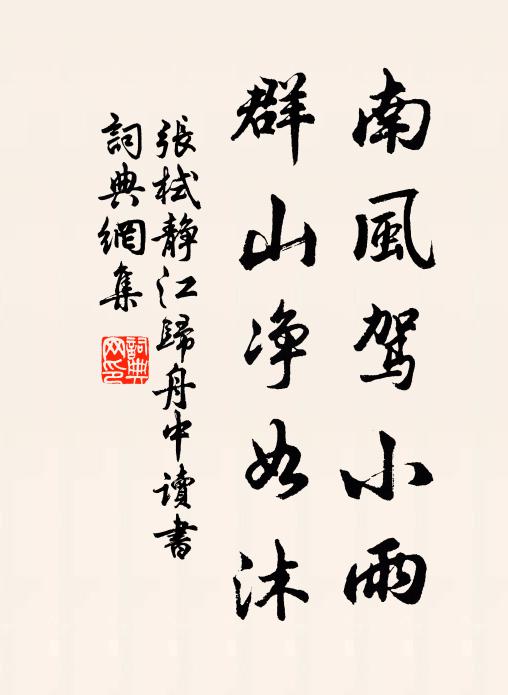 南風駕小雨
群山净如沐
張栻静江歸舟中讀書
詞典網集
詞典
网印